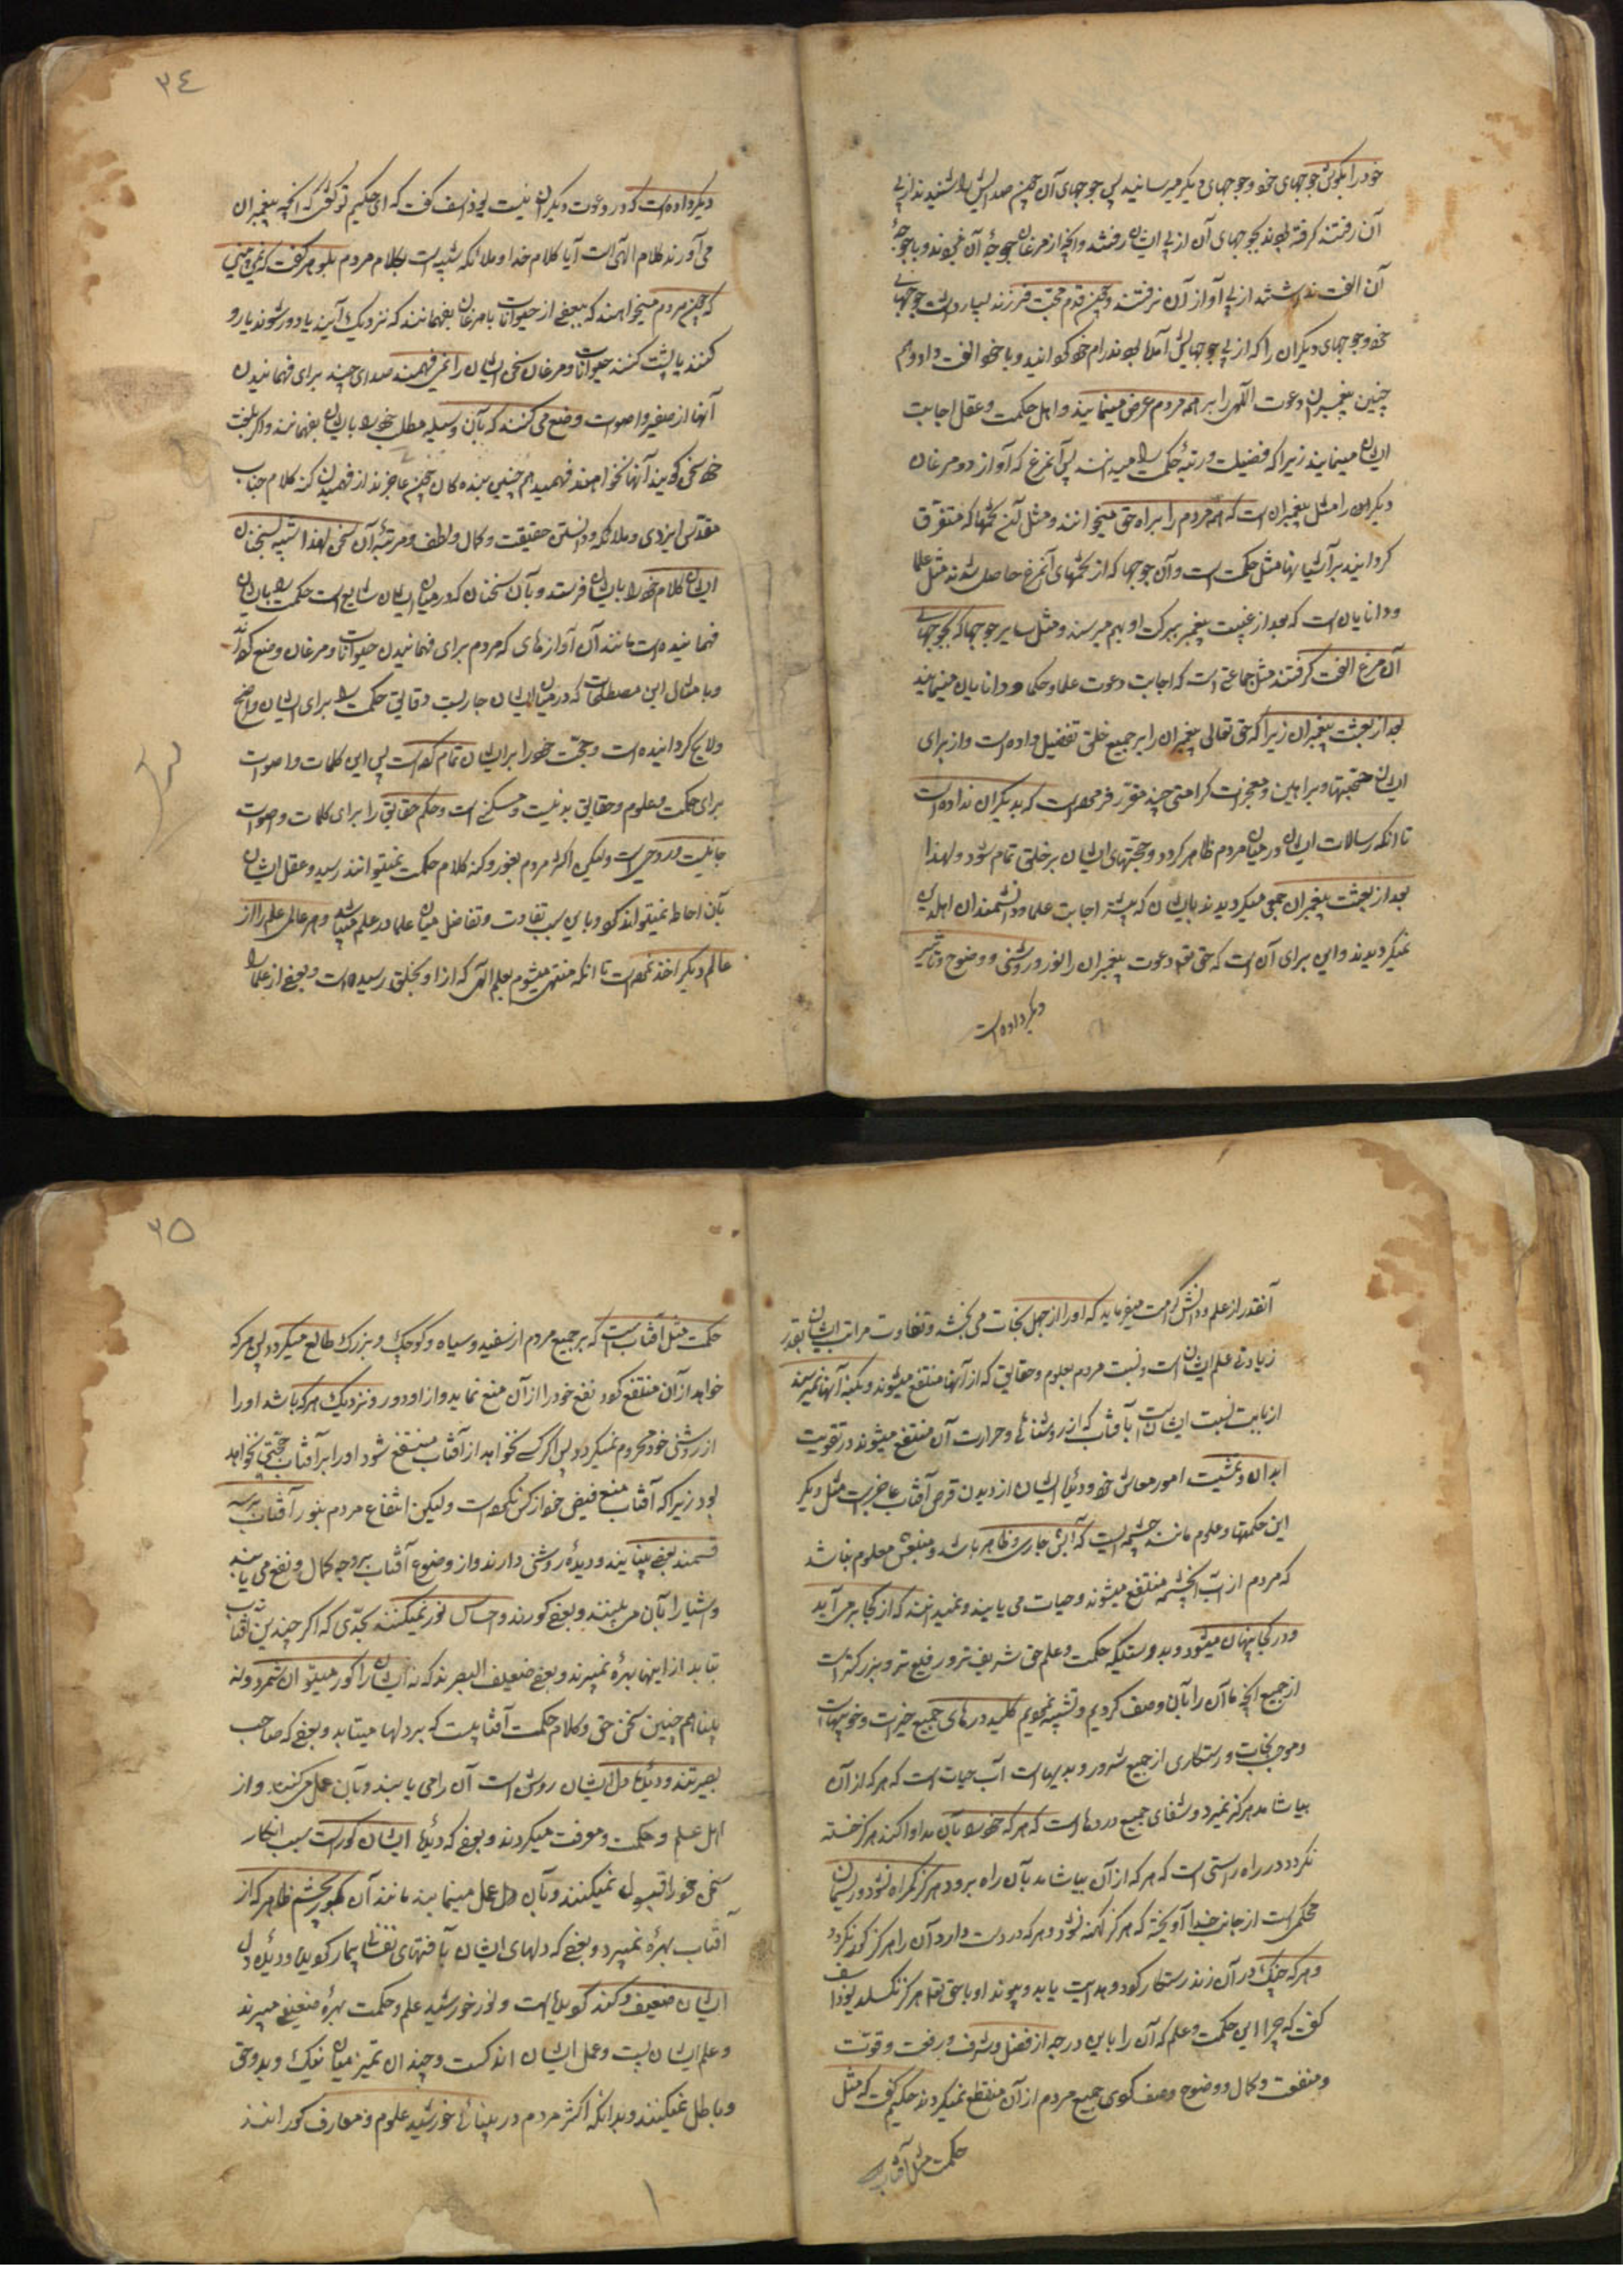 خود را بگوش جوجهای خود وجوجهای دیگر میرسانید پس جوجهای آن چون صدایش را شنیدند از پی
آن رفتند کرفته بودند بجوجهای آن از پی ایشان رفتند وانچه از مرغان جوجهٔ آن نبودند وبا جوجهٔ
آن الفت نداشتند از پی آواز آن نرفتند وچون قدم محبت فرزند بسیار داشت جوجهای
خود وجوجهای دیگران را که از پی جوجهایش آمده بودند رام خود کردانید وبا خود الفت داد وهم
چنین پیغمبران دعوت الهی را بر همه مردم عرض مینمایند واهل حکمت وعقل اجابت
ایشان مینمایند زیرا که فضیلت ورتبهٔ حکمت را میدانند پس آنمرغ که آواز زد مرغان
دیگر این را مثل پیغمبران است که همه مردم را براه حق میخوانند ومثل آن تخمها که متفرق
کردانید بر آشیانها مثل حکمت است وآن جوجها که از تخمهای آنمرغ حاصل شدند مثل علما
ودانایان است که بعد از غیبت پیغمبر ببرکت او بهم میرسند ومثل سایر جوجها که بجوجهای
آن مرغ الفت کرفتند مثل جماعتی است که اجابت دعوت علما وحکما ودانایان مینمایند
بعد از بعثت پیغمبران زیرا که حق تعالی پیغمبران را بر جمیع خلق تفضیل داده است واز برای
ایشان حجتها وبراهین ومعجزات کرامتی چند مقرر فرموده است که بدیگران نداده است
تا انکه رسالات ایشان در میان مردم ظاهر کردد وحجتهای ایشان بر خلق تمام شود ولهذا
بعد از بعثت پیغمبران جمعی میکردیدند بایشان که پیشتر اجابت علما ودانشمندان اهل دین
نمیکردیدند واین برای آن است که حق تعالی دعوت پیغمبران را نور وروشنی ووضوح وتاثیر
دیکر داده است
٣٤
دیکر داده است که در دعوت دیکران نیست یوذاسف کفت که ای حکیم تو کفتی که انچه پیغمبران
می آورند کلام الهی است آیا کلام خدا وملائکه شبیه است بکلام مردم بلوهر کفت که نمی بینی
که چون مردم میخواهند که ببعضی از حیوانات یا مرغان بفهمانند که نزدیک آیند یا دور شوند یا رو
کنند یا پشت کنند حیوانات ومرغان سخن ایشان را نمی فهمند صدای چند برای فهمانیدن
آنها از صفیر واصوات وضع می کنند که بآن وسیله مطلب خود را بایشان بفهمانند واکر بلغت
خود سخن کویند آنها نخواهند فهمید هم چنین بندکان چون عاجزند از فهمیدن کنه کلام جناب
مقدس ایزدی وملائکه ودانستن حقیقت وکمال ولطف ومرتبهٔ آن سخن لهذا شبیه بسخنان
ایشان کلام خود را بایشان فرستد وبآن سخنان که در میان ایشان شایع است حکمت را بایشان
فهمانیده است مانند آن آوازهای که مردم برای فهمانیدن حیوانات ومرغان وضع کرده اند
وبامثال این مصطلحات که در میان ایشان جاریست دقایق حکمت را برای ایشان واضح
ولایح کردانیده است وحجت خود را بر ایشان تمام کرده است پس این کلمات واصوات
برای حکمت وعلوم وحقایق بدنیست ومسکنی است وحکم حقایق را برای کلمات واصوات
جانیست وروحی است ولیکن اکثر مردم بغور وکنه کلام حکمت نمیتوانند رسید وعقل ایشان
بآن احاطه نمیتواند کرد وباین سبب تفاوت وتفاضل میان علما در علم میباشد وهر عالمی علم را از
عالم دیکر اخذ نموده است تا انکه منتهی میشود بعلم الهی که از او بخلق رسیده است وبعضی از علما را
آنقدر از علم ودانش کرامت میفرماید که او را از جهل نجات می بخشد وتفاوت مراتب ایشان بقدر
زیادتی علم ایشان است ونسبت مردم بعلوم وحقایق که از آنها منتفع میشوند وبکنه آنها نمیرسند
از بابت نسبت ایشان است بآفتاب که از روشنائی وحرارت آن منتفع میشوند در تقویت
ابدان وتمشیت امور معاش خود ودیدهٔ ایشان از دیدن قرص آفتاب عاجز است مثل دیکر
این حکمتها وعلوم مانند چشمه ایست که آبش جاری وظاهر باشد ومنبعش معلوم نباشد
که مردم از آب آنچشمه منتفع میشوند وحیات می یابند ونمیدانند که از کجا بر می آید
ودر کجا پنهان میشود وبدرستیکه حکمت وعلم حق شریف تر ورفیع تر وبزرکتر است
از جمیع انچه ما آن را بآن وصف کردیم وتشبیه نمودیم کلید درهای جمیع خیرات وخوبیهاست
وموجب نجات ورستکاری از جمیع شرور وبدیهاست آب حیات است که هر که از آن
بیاشامد هرکز نمیرد وشفای جمیع دردهاست که هر که خود را بآن مداوا کند هرکز خسته
نکردد در راه راستی است که هر که از آن بیاشامد بآن راه برود هرکز کمراه نشود وریسمان
محکمی است از جانب خدا آویخته که هرکز کهنه نشود وهر که در دست دارد آن را هرکز کور نکردد
وهر که چنک در آن زند رستکار کردد وهدایت یابد وپیوند او با حق تعالی هرکز نکسلد یوذاسف
کفت که چرا این حکمت وعلم که آن را باین درجه از فضل وشرف ورفعت وقوت
ومنفعت وکمال ووضوح وصف کردی جمیع مردم از آن منتفع نمیکردند حکیم کفت که مثل
حکمت مثل آفتاب است
٣٥
حکمت مثل آفتاب است که بر جمیع مردم از سفید وسیاه وکوچک وبزرک طالع میکردد پس هر که
خواهد از آن منتفع کردد نفع خود را از آن منع نماید واز او دور ونزدیک هر که باشد او را
از روشنی خود محروم نمیکردد پس اکر کسی نخواهد از آفتاب منتفع شود او را بر آفتاب حجتی نخواهد
بود زیرا که آفتاب منع فیض خود از کسی نکرده است ولیکن انتفاع مردم بنور آفتاب بر سه
قسمند بعضی بینایند ودیدهٔ روشنی دارند واز وضوح آفتاب بر وجه کمال ونفع می یابند
واشیا را بآن می بینند وبعضی کورند واحساس نور نمیکنند بحدی که اکر چندین آفتاب
بتابد از اینها بهره نمیبرند وبعضی ضعیف البصرند که نه ایشان را کور میتوان شمرد ونه
بینا هم چنین سخن حق وکلام حکمت آفتابیست که بر دلها میتابد وبعضی که صاحب
بصیرتند ودیدهٔ دل ایشان روشن است آن را می یابند وبآن عمل می کنند واز
اهل علم وحکمت ومعرفت میکردند وبعضی که دیدهٔ ایشان کور است سبب انکار
سخن حق را قبول نمیکنند وبآن عمل مینمایند مانند آن کور بچشم ظاهر که از
آفتاب بهره نمیبرد وبعضی که دلهای ایشان بآفتهای نفسانی بیمار کردیده ودیدهٔ دل
ایشان ضعیف وکند کردیده است ونور خورشید علم وحکمت بهرهٔ ضعیفی میبرند
وعلم ایشان پست وعمل ایشان اندکست وچندان تمیز میان نیک وبد وحق
وباطل نمیکنند وبدانکه اکثر مردم در بینائی خورشید علوم ومعارف کورانند